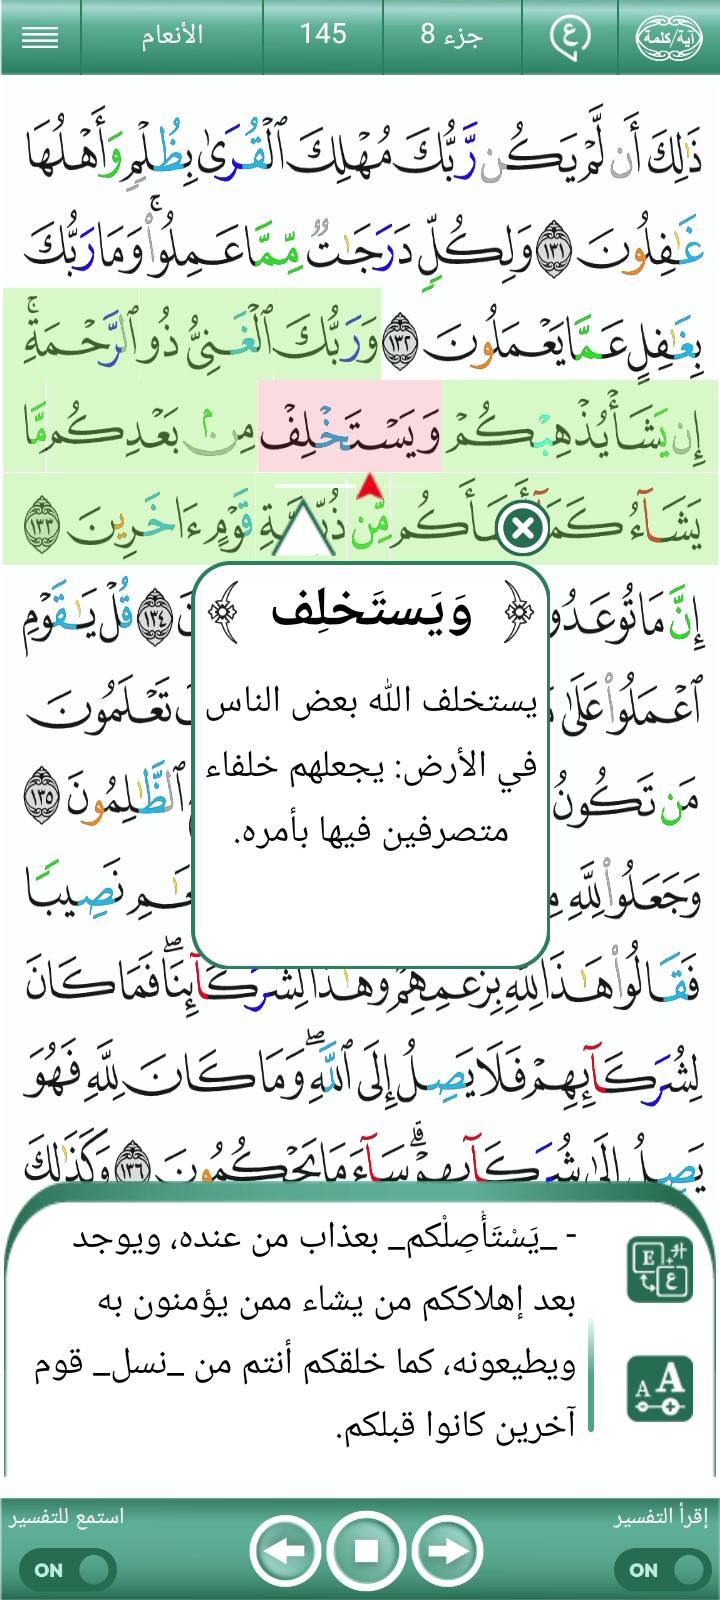 آية/كلمة ع جزء 8 145 الأنعام
ذَٰلِكَ أَن لَّمْ يَكُن رَّبُّكَ مُهْلِكَ ٱلْقُرَىٰ بِظُلْمٍ وَأَهْلُهَا
غَٰفِلُونَ ١٣١ وَلِكُلٍّ دَرَجَٰتٌ مِّمَّا عَمِلُوا۟ ۚ وَمَا رَبُّكَ
بِغَٰفِلٍ عَمَّا يَعْمَلُونَ ١٣٢ وَرَبُّكَ ٱلْغَنِىُّ ذُو ٱلرَّحْمَةِ ۚ
إِن يَشَأْ يُذْهِبْكُمْ وَيَسْتَخْلِفْ مِنۢ بَعْدِكُم مَّا
يَشَآءُ كَمَآ مِّن قَوْمٍ ءَاخَرِينَ ١٣٣
إِنَّ مَا ١٣٤ قُلْ يَٰقَوْمِ
ٱعْمَلُوا۟ تَعْلَمُونَ
مَن تَكُونُ ٱلظَّٰلِمُونَ ١٣٥
وَجَعَلُوا۟ لِلَّهِ نَصِيبًا
فَقَالُوا۟ هَٰذَا لِلَّهِ بِزَعْمِهِمْ وَهَٰذَا لِشُرَكَآئِنَا ۖ فَمَا كَانَ
لِشُرَكَآئِهِمْ فَلَا يَصِلُ إِلَى ٱللَّهِ ۖ وَمَا كَانَ لِلَّهِ فَهُوَ
يَصِلُ إِلَىٰ شُرَكَآئِهِمْ ۗ سَآءَ مَا يَحْكُمُونَ ١٣٦ وَكَذَٰلِكَ
﴿ وَيَستَخلِف ﴾
يستخلف الله بعض الناس
في الأرض: يجعلهم خلفاء
متصرفين فيها بأمره.
- _يَسْتَأْصِلْكم_ بعذاب من عنده، ويوجد
بعد إهلاككم من يشاء ممن يؤمنون به
ويطيعونه، كما خلقكم أنتم من _نسل_ قوم
آخرين كانوا قبلكم.
E ع
A A
إقرأ التفسير استمع للتفسير
ON ON